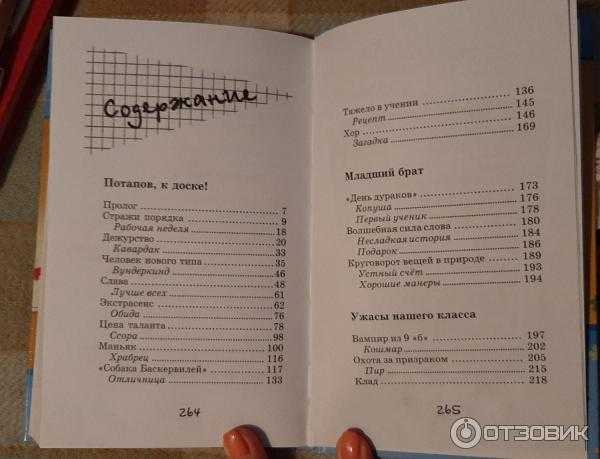 Содержание
Потапов, к доске!
Пролог 7
Стражи порядка 9
Рабочая неделя 18
Дежурство 20
Кавардак 33
Человек нового типа 35
Вундеркинд 46
Слава 48
Лучше всех 61
Экстрасенс 62
Обида 76
Цена таланта 78
Ссора 98
Маньяк 100
Храбрец 116
«Собака Баскервилей» 117
Отличница 133
264
Тяжело в учении 136
Рецепт 145
Хор 146
Загадка 169
Младший брат
«День дураков» 173
Копуша 176
Первый ученик 178
Волшебная сила слова 180
Несладкая история 184
Подарок 186
Круговорот вещей в природе 189
Устный счёт 193
Хорошие манеры 194
Ужасы нашего класса
Вампир из 9 «б» 197
Кошмар 202
Охота за призраком 205
Пир 215
Клад 218
265
ОТЗОВИК